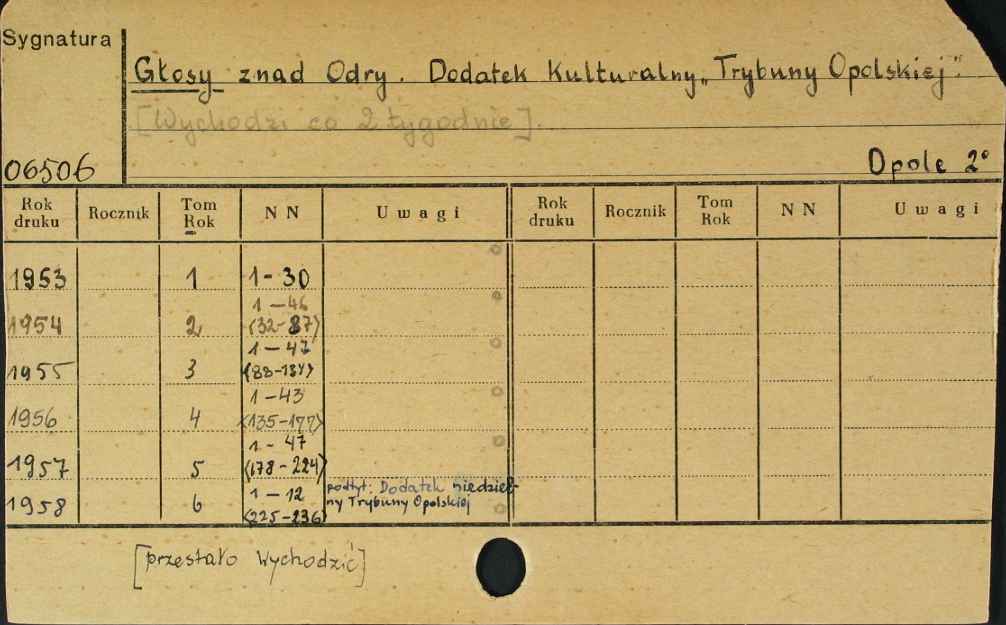 Sygnatura
Głosy znad Odry. Dodatek Kulturalny „Trybuny Opolskiej".
[Wychodzi co 2 tygodnie].
06506 Opole 2°
Rok druku Rocznik Tom Rok NN Uwagi Rok druku Rocznik Tom Rok NN Uwagi
1953 1 1-30
1954 2 1-46 <32-87>
1955 3 1-47 <88-134>
1956 4 1-43 <135-177>
1957 5 1-47 <178-224>
1958 6 1-12 <225-236> podtyt: Dodatek niedziel-
ny Trybuny Opolskiej
[przestało wychodzić]